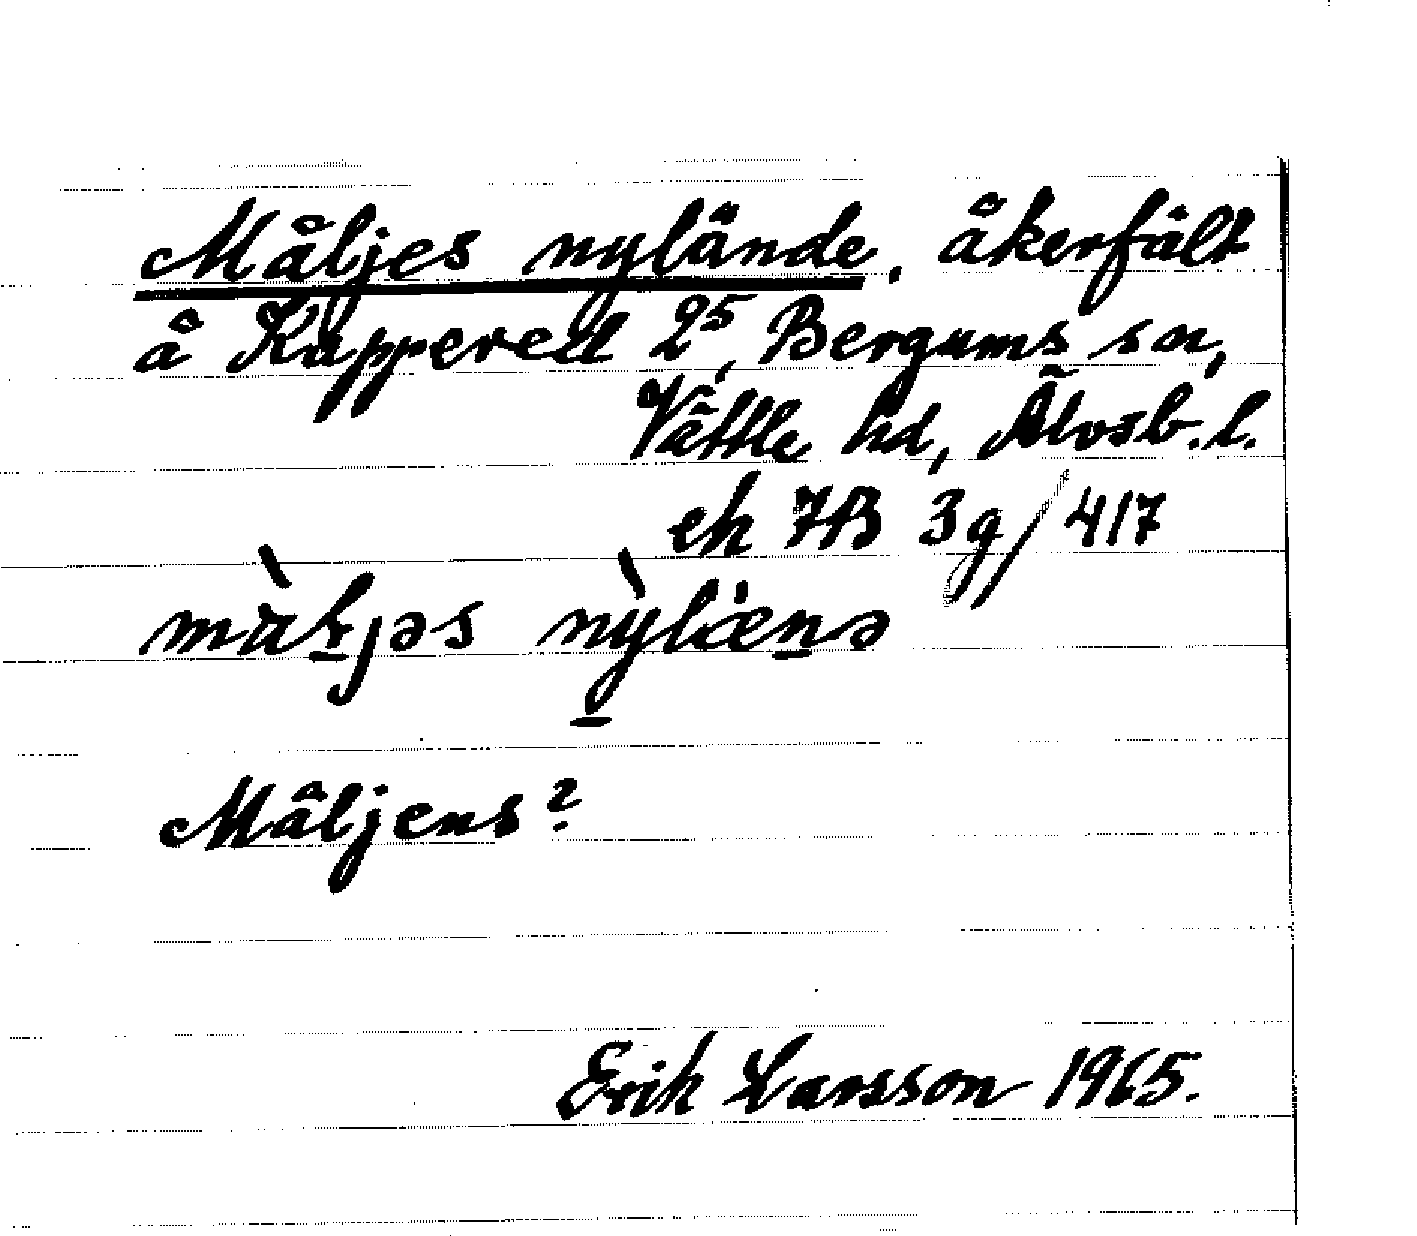 Måljes nylände, åkerfält
å Kappered 2⁵, Bergums sn,
Vättle hd, Älvsb. l.
ek 7B 3g/417
nỳlænə
Måljens?
Erik Larsson 1965.